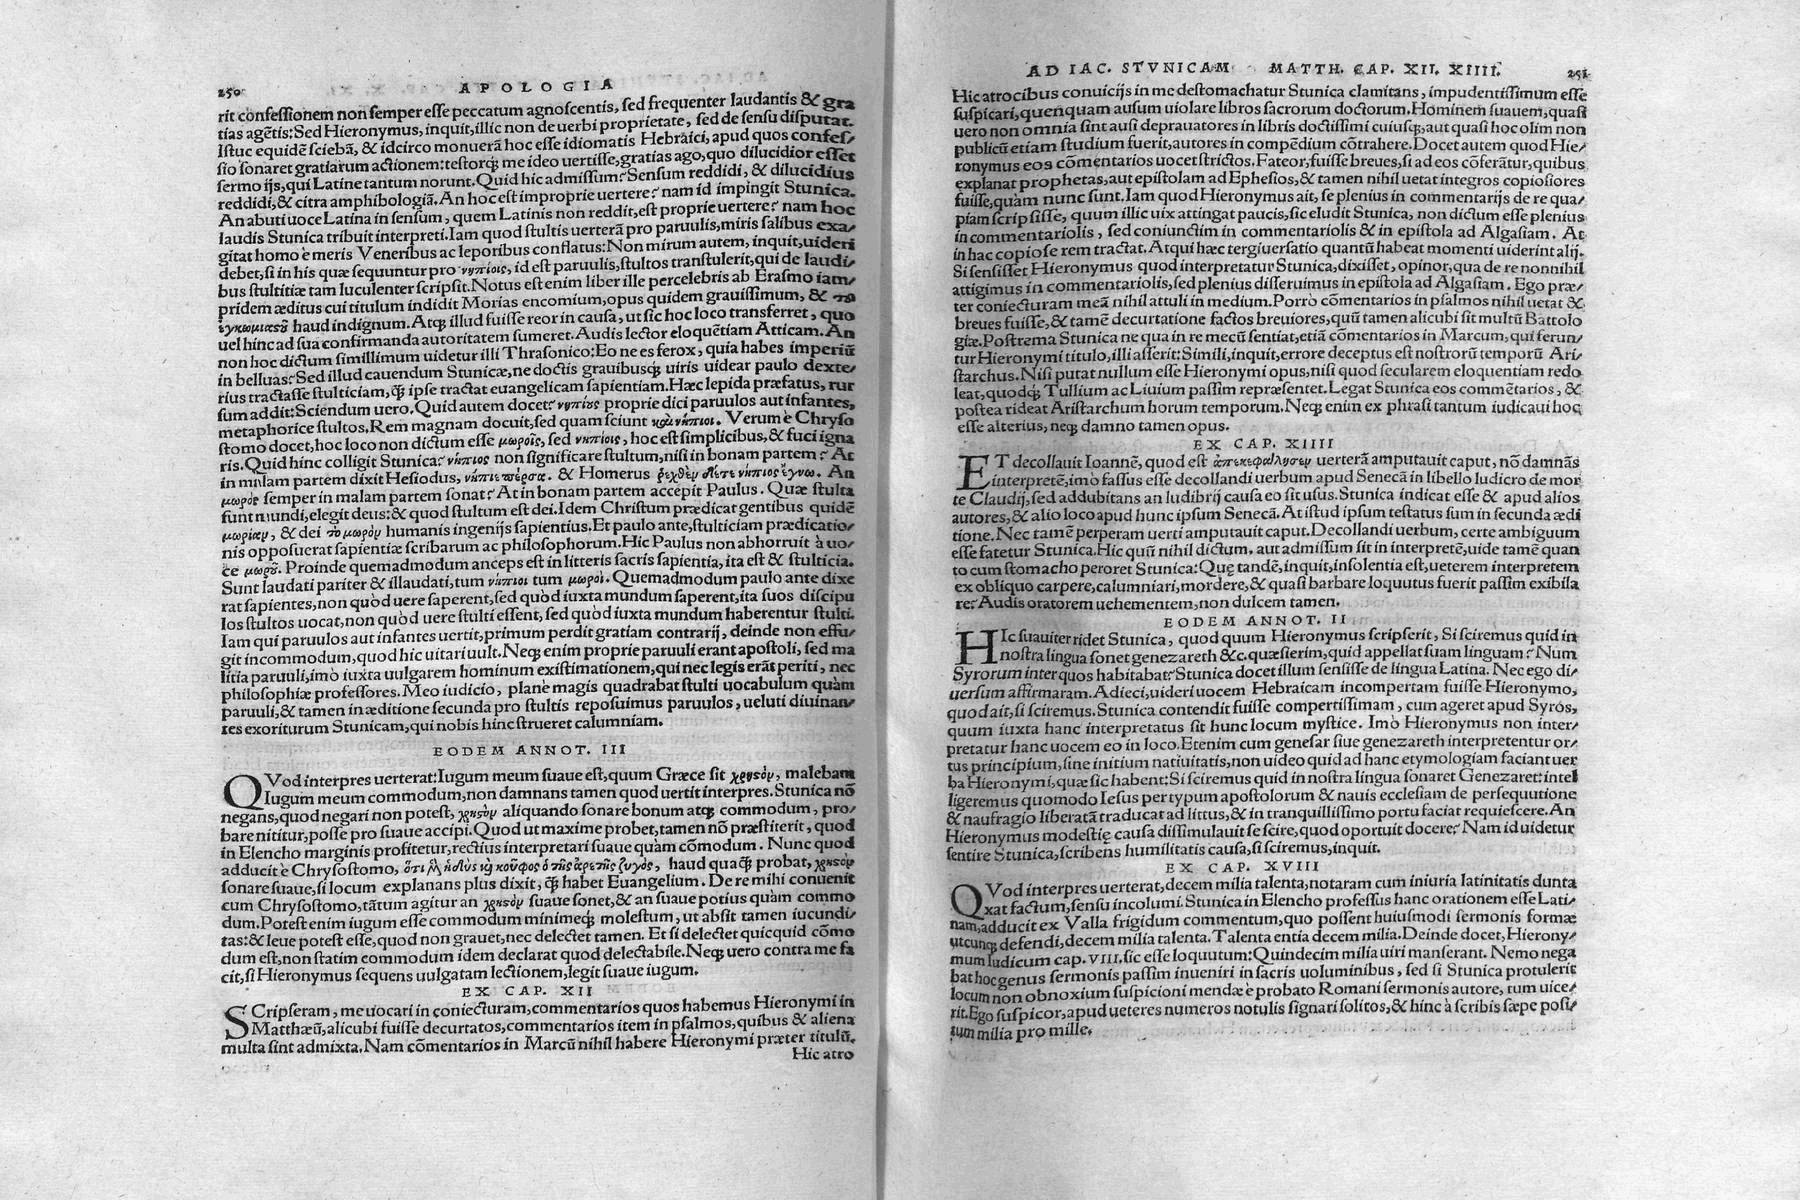 250 APOLOGIA
rit confessionem non semper esse peccatum agnoscentis, sed frequenter laudantis & gra
tias agētis: Sed Hieronymus, inquit, illic non de uerbi proprietate, sed de sensu disputat.
Istuc equidē sciebā, & idcirco monuerā hoc esse idiomatis Hebraici, apud quos confes/
sio sonaret gratiarum actionem: testorq; me ideo uertisse, gratias ago, quo dilucidior esset
sermo ijs, qui Latine tantum norunt. Quid hic admissum? Sensum reddidi, & dilucidius
reddidi, & citra amphibologiā. An hoc est improprie uertere? nam id impingit Stunica.
An abuti uoce Latina in sensum, quem Latinis non reddit, est proprie uertere? nam hoc
laudis Stunica tribuit interpreti. Iam quod stultis uerterā pro paruulis, miris salibus exa/
gitat homo e meris Veneribus ac leporibus conflatus: Non mirum autem, inquit, uideri
debet, si in his quæ sequuntur pro νηπίοις, id est paruulis, stultos transtulerit, qui de laudi/
bus stultitiæ tam luculenter scripsit. Notus est enim liber ille percelebris ab Erasmo iam/
pridem æditus cui titulum indidit Morias encomium, opus quidem grauissimum, & το
ἐγκωμιαστοῦ haud indignum. Atq; illud fuisse reor in causa, ut sic hoc loco transferret, quo
uel hinc ad sua confirmanda autoritatem sumeret. Audis lector eloquētiam Atticam. An
non hoc dictum simillimum uidetur illi Thrasonico: Eo ne es ferox, quia habes imperiū
in belluas? Sed illud cauendum Stunicæ, ne doctis grauibusq; uiris uidear paulo dexte/
rius tractasse stulticiam, q̃ ipse tractat euangelicam sapientiam. Hæc lepida præfatus, rur
sum addit: Sciendum uero. Quid autem docet? νηπίους proprie dici paruulos aut infantes,
metaphorice stultos. Rem magnam docuit, sed quam sciunt καὶ νήπιοι. Verum e Chryso
stomo docet, hoc loco non dictum esse μωροῖς, sed νηπίοις, hoc est simplicibus, & fuci igna
ris. Quid hinc colligit Stunica? νήπιος non significare stultum, nisi in bonam partem? At
in malam partem dixit Hesiodus, νήπιε πέρσα. & Homerus ῥεχθὲν δέ τε νήπιος ἔγνω. An
μωρὸς semper in malam partem sonat? At in bonam partem accepit Paulus. Quæ stulta
sunt mundi, elegit deus: & quod stultum est dei. Idem Christum prædicat gentibus quidē
μωρίαν, & dei τὸ μωρὸν humanis ingenijs sapientius. Et paulo ante, stulticiam prædicatio/
nis opposuerat sapientiæ scribarum ac philosophorum. Hic Paulus non abhorruit à uo/
ce μωροῦ. Proinde quemadmodum anceps est in litteris sacris sapientia, ita est & stulticia.
Sunt laudati pariter & illaudati, tum νήπιοι tum μωροὶ. Quemadmodum paulo ante dixe
rat sapientes, non quòd uere saperent, sed quòd iuxta mundum saperent, ita suos discipu
los stultos uocat, non quòd uere stulti essent, sed quòd iuxta mundum haberentur stulti.
Iam qui paruulos aut infantes uertit, primum perdit gratiam contrarij, deinde non effu/
git incommodum, quod hic uitari uult. Neq; enim proprie paruuli erant apostoli, sed ma
litia paruuli, imò iuxta uulgarem hominum existimationem, qui nec legis erāt periti, nec
philosophiæ professores. Meo iudicio, plane magis quadrabat stulti uocabulum quàm
paruuli, & tamen in æditione secunda pro stultis reposuimus paruulos, ueluti diuinan/
tes exoriturum Stunicam, qui nobis hinc strueret calumniam.
EODEM ANNOT. III
QVod interpres uerterat: Iugum meum suaue est, quum Græce sit χρηστὸν, malebam
Iugum meum commodum, non damnans tamen quod uertit interpres. Stunica nō
negans, quod negari non potest, χρηστὸν aliquando sonare bonum atq; commodum, pro/
bare nititur, posse pro suaue accipi. Quod ut maxime probet, tamen nō præstiterit, quod
in Elencho marginis profitetur, rectius interpretari suaue quàm cōmodum. Nunc quod
adducit e Chrysostomo, ὅτι ἡδὺς καὶ κοῦφος ὁ τῆς ἀρετῆς ζυγὸς, haud quaq̃ probat, χρηστὸν
sonare suaue, si locum explanans plus dixit, q̃ habet Euangelium. De re mihi conuenit
cum Chrysostomo, tātum agitur an χρηστὸν suaue sonet, & an suaue potius quàm commo
dum. Potest enim iugum esse commodum minimeq; molestum, ut absit tamen iucundi/
tas: & leue potest esse, quod non grauet, nec delectet tamen. Et si delectet quicquid cōmo
dum est, non statim commodum idem declarat quod delectabile. Neq; uero contra me fa
cit, si Hieronymus sequens uulgatam lectionem, legit suaue iugum.
EX CAP. XII
SCripseram, me uocari in coniecturam, commentarios quos habemus Hieronymi in
Matthæū, alicubi fuisse decurtatos, commentarios item in psalmos, quibus & aliena
multa sint admixta. Nam cōmentarios in Marcū nihil habere Hieronymi præter titulū.
Hic atro
AD IAC. STVNICAM MATTH. CAP. XII. XIIII. 251
Hic atrocibus conuicijs in me destomachatur Stunica clamitans, impudentissimum esse
suspicari, quenquam ausum uiolare libros sacrorum doctorum. Hominem suauem, quasi
uero non omnia sint ausi deprauatores in libris doctissimi cuiusq;, aut quasi hoc olim non
publicū etiam studium fuerit, autores in compēdium cōtrahere. Docet autem quod Hie/
ronymus eos cōmentarios uocet strictos. Fateor, fuisse breues, si ad eos cōferātur, quibus
explanat prophetas, aut epistolam ad Ephesios, & tamen nihil uetat integros copiosiores
fuisse, quàm nunc sunt. Iam quod Hieronymus ait, se plenius in commentarijs de re qua/
piam scripsisse, quum illic uix attingat paucis, sic eludit Stunica, non dictum esse plenius
in commentariolis, sed coniunctim in commentariolis & in epistola ad Algasiam. At
in hac copiose rem tractat. Atqui hæc tergiuersatio quantū habeat momenti uiderint alij.
Si sensisset Hieronymus quod interpretatur Stunica, dixisset, opinor, qua de re nonnihil
attigimus in commentariolis, sed plenius disseruimus in epistola ad Algasiam. Ego præ/
ter coniecturam meā nihil attuli in medium. Porrò cōmentarios in psalmos nihil uetat &
breues fuisse, & tamē decurtatione factos breuiores, quū tamen alicubi sit multū Battolo
giæ. Postrema Stunica ne qua in re mecū sentiat, etiā cōmentarios in Marcum, qui ferun/
tur Hieronymi titulo, illi asserit: Simili, inquit, errore deceptus est nostrorū temporū Ari/
starchus. Nisi putat nullum esse Hieronymi opus, nisi quod secularem eloquentiam redo
leat, quodq; Tullium ac Liuium passim repræsentet. Legat Stunica eos commētarios, &
postea rideat Aristarchum horum temporum. Neq; enim ex phrasi tantum iudicaui hoc
esse alterius, neq; damno tamen opus.
EX CAP. XIIII
ET decollauit Ioannē, quod est ἀπεκεφάλησεν uerterā amputauit caput, nō damnās
interpretē, imò fassus esse decollandi uerbum apud Senecā in libello ludicro de mor
te Claudij, sed addubitans an ludibrij causa eo sit usus. Stunica indicat esse & apud alios
autores, & alio loco apud hunc ipsum Senecā. At istud ipsum testatus sum in secunda ædi
tione. Nec tamē perperam uerti amputauit caput. Decollandi uerbum, certe ambiguum
esse fatetur Stunica. Hic quū nihil dictum, aut admissum sit in interpretē, uide tamē quan
to cum stomacho peroret Stunica: Quę tandē, inquit, insolentia est, ueterem interpretem
ex obliquo carpere, calumniari, mordere, & quasi barbare loquutus fuerit passim exibila
re? Audis oratorem uehementem, non dulcem tamen.
EODEM ANNOT. II
HIc suauiter ridet Stunica, quod quum Hieronymus scripserit, Si sciremus quid in
nostra lingua sonet genezareth &c. quæsierim, quid appellat suam linguam? Num
Syrorum inter quos habitabat? Stunica docet illum sensisse de lingua Latina. Nec ego di/
uersum affirmaram. Adieci, uideri uocem Hebraicam incompertam fuisse Hieronymo,
quod ait, si sciremus. Stunica contendit fuisse compertissimam, cum ageret apud Syros,
quum iuxta hanc interpretatus sit hunc locum mystice. Imò Hieronymus non inter/
pretatur hanc uocem eo in loco. Etenim cum genesar siue genezareth interpretentur or/
tus principium, siue initium natiuitatis, non uideo quid ad hanc etymologiam faciant uer
ba Hieronymi, quæ sic habent: Si sciremus quid in nostra lingua sonaret Genezaret: intel
ligeremus quomodo Iesus per typum apostolorum & nauis ecclesiam de persequutione
& naufragio liberatā traducat ad littus, & in tranquillissimo portu faciat requiescere. An
Hieronymus modestię causa dissimulauit se scire, quod oportuit docere? Nam id uidetur
sentire Stunica, scribens humilitatis causa, si sciremus, inquit.
EX CAP. XVIII
QVod interpres uerterat, decem milia talenta, notaram cum iniuria latinitatis dunta
xat factum, sensu incolumi. Stunica in Elencho professus hanc orationem esse Lati/
nam, adducit ex Valla frigidum commentum, quo possent huiusmodi sermonis formæ
utcunq; defendi, decem milia talenta. Talenta entia decem milia. Deinde docet, Hierony/
mum Iudicum cap. VIII. sic esse loquutum: Quindecim milia uiri manserant. Nemo nega
bat hoc genus sermonis passim inueniri in sacris uoluminibus, sed si Stunica protulerit
locum non obnoxium suspicioni mendæ e probato Romani sermonis autore, tum uice/
rit. Ego suspicor, apud ueteres numeros notulis signari solitos, & hinc à scribis sæpe posi/
tum milia pro mille.